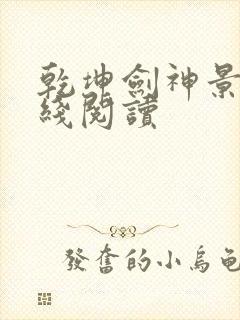 乾坤劍神景
綫閱讀
發奮的小烏龜